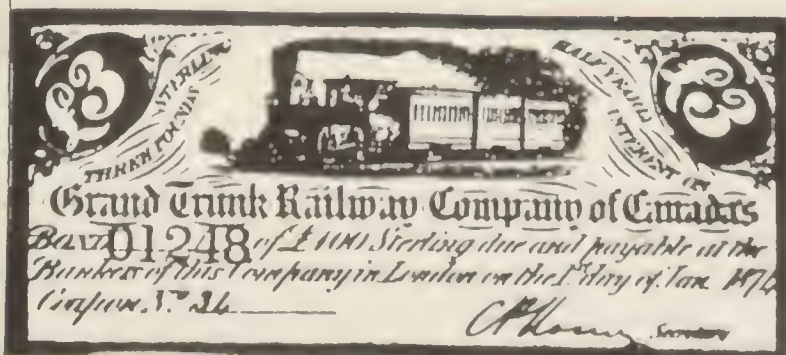 £3
THREE POUNDS STERLING
HALF YEARLY INTEREST ON
£3
Grand Trunk Railway Company of Canada's
Bond 01248 of £100 Sterling due and payable at the
Bankers of this Company in London on the 1st day of Jan.
Coupon No.
Secretary